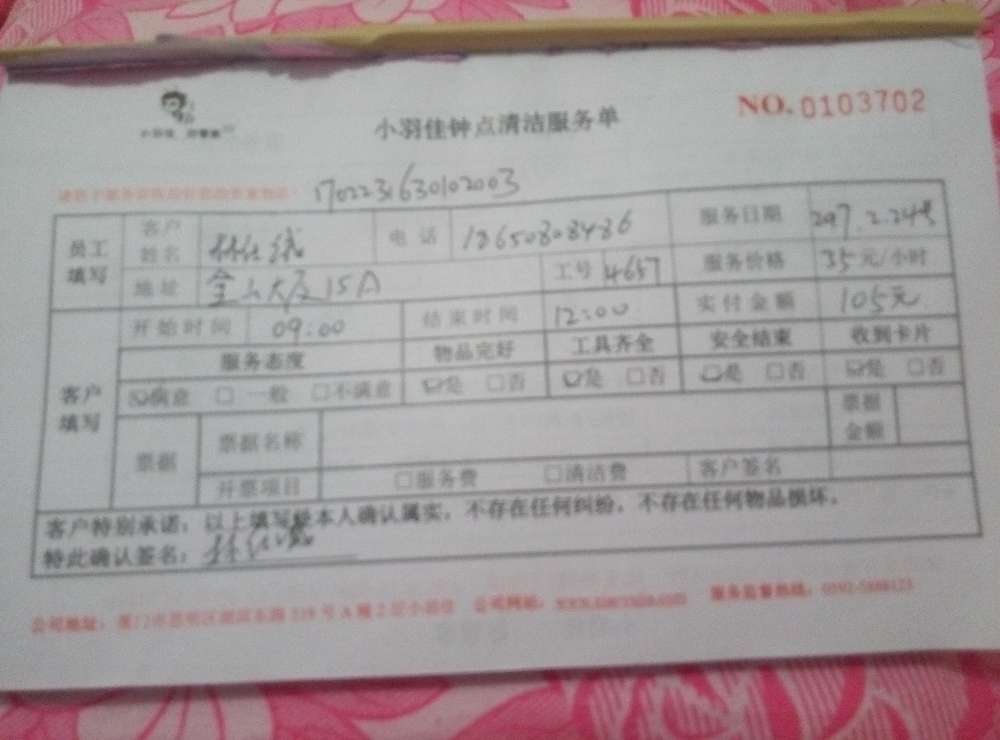 小羽佳钟点清洁服务单
NO. 0103702
1702231630102003
员工填写 客户姓名 电话 18650808486 服务日期
地址 金山大厦15A 工号 4657 服务价格 35元/小时
客户填写 开始时间 09:00 结束时间 12:00 实付金额 105元
服务态度 物品完好 工具齐全 安全结束 收到卡片
满意 一般 不满意 是 否 是 否 是 否 是 否
票据 票据名称 票据金额
开票项目 服务费 清洁费 客户签名
客户特别承诺：以上填写经本人确认属实，不存在任何纠纷，不存在任何物品损坏，
特此确认签名：
公司地址： 号A幢2层小羽佳 公司网站： 服务监督热线：